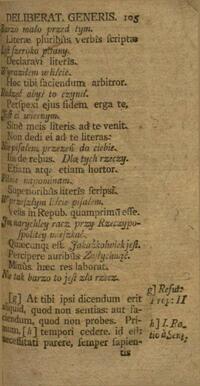 DELIBERAT. GENERIS. 105
Barzo mało przed tym.
Literæ pluribus verbis scriptæ
szeroko pisany.
Declaravi literis.
Wyraziłem w liście.
Hoc tibi faciendum arbitror.
abyś to czynił.
Perspexi ejus fidem erga te,
Jest ci wiernym.
Sine meis literis ad te venit.
Non dedi ei ad te literas:
Nie pisałem przezeń do ciebie.
Iis de rebus. Dla tych rzeczy.
Etiam atq; etiam hortor.
Pilnie napominam.
Superioribus literis scripsi.
W przeszłym liście pisałem.
Velis in Repub. quamprimū esse.
Jak narychley racz przy Rzeczypo-
spolitey mieszkać.
Quæcunq; est. Jakażkolwiek jest.
Percipere auribus
Minus hæc res laborat.
Nie tak barzo to jest zła rzecz.
[g] At tibi ipsi dicendum erit
aliquid, quod non sentias: aut fa-
ciendum, quod non probes. Pri-
mum, [h] tempori cedere, id est
necessitati parere, semper sapien-
tis
g] Refut-
h] I. Ra-
tio à